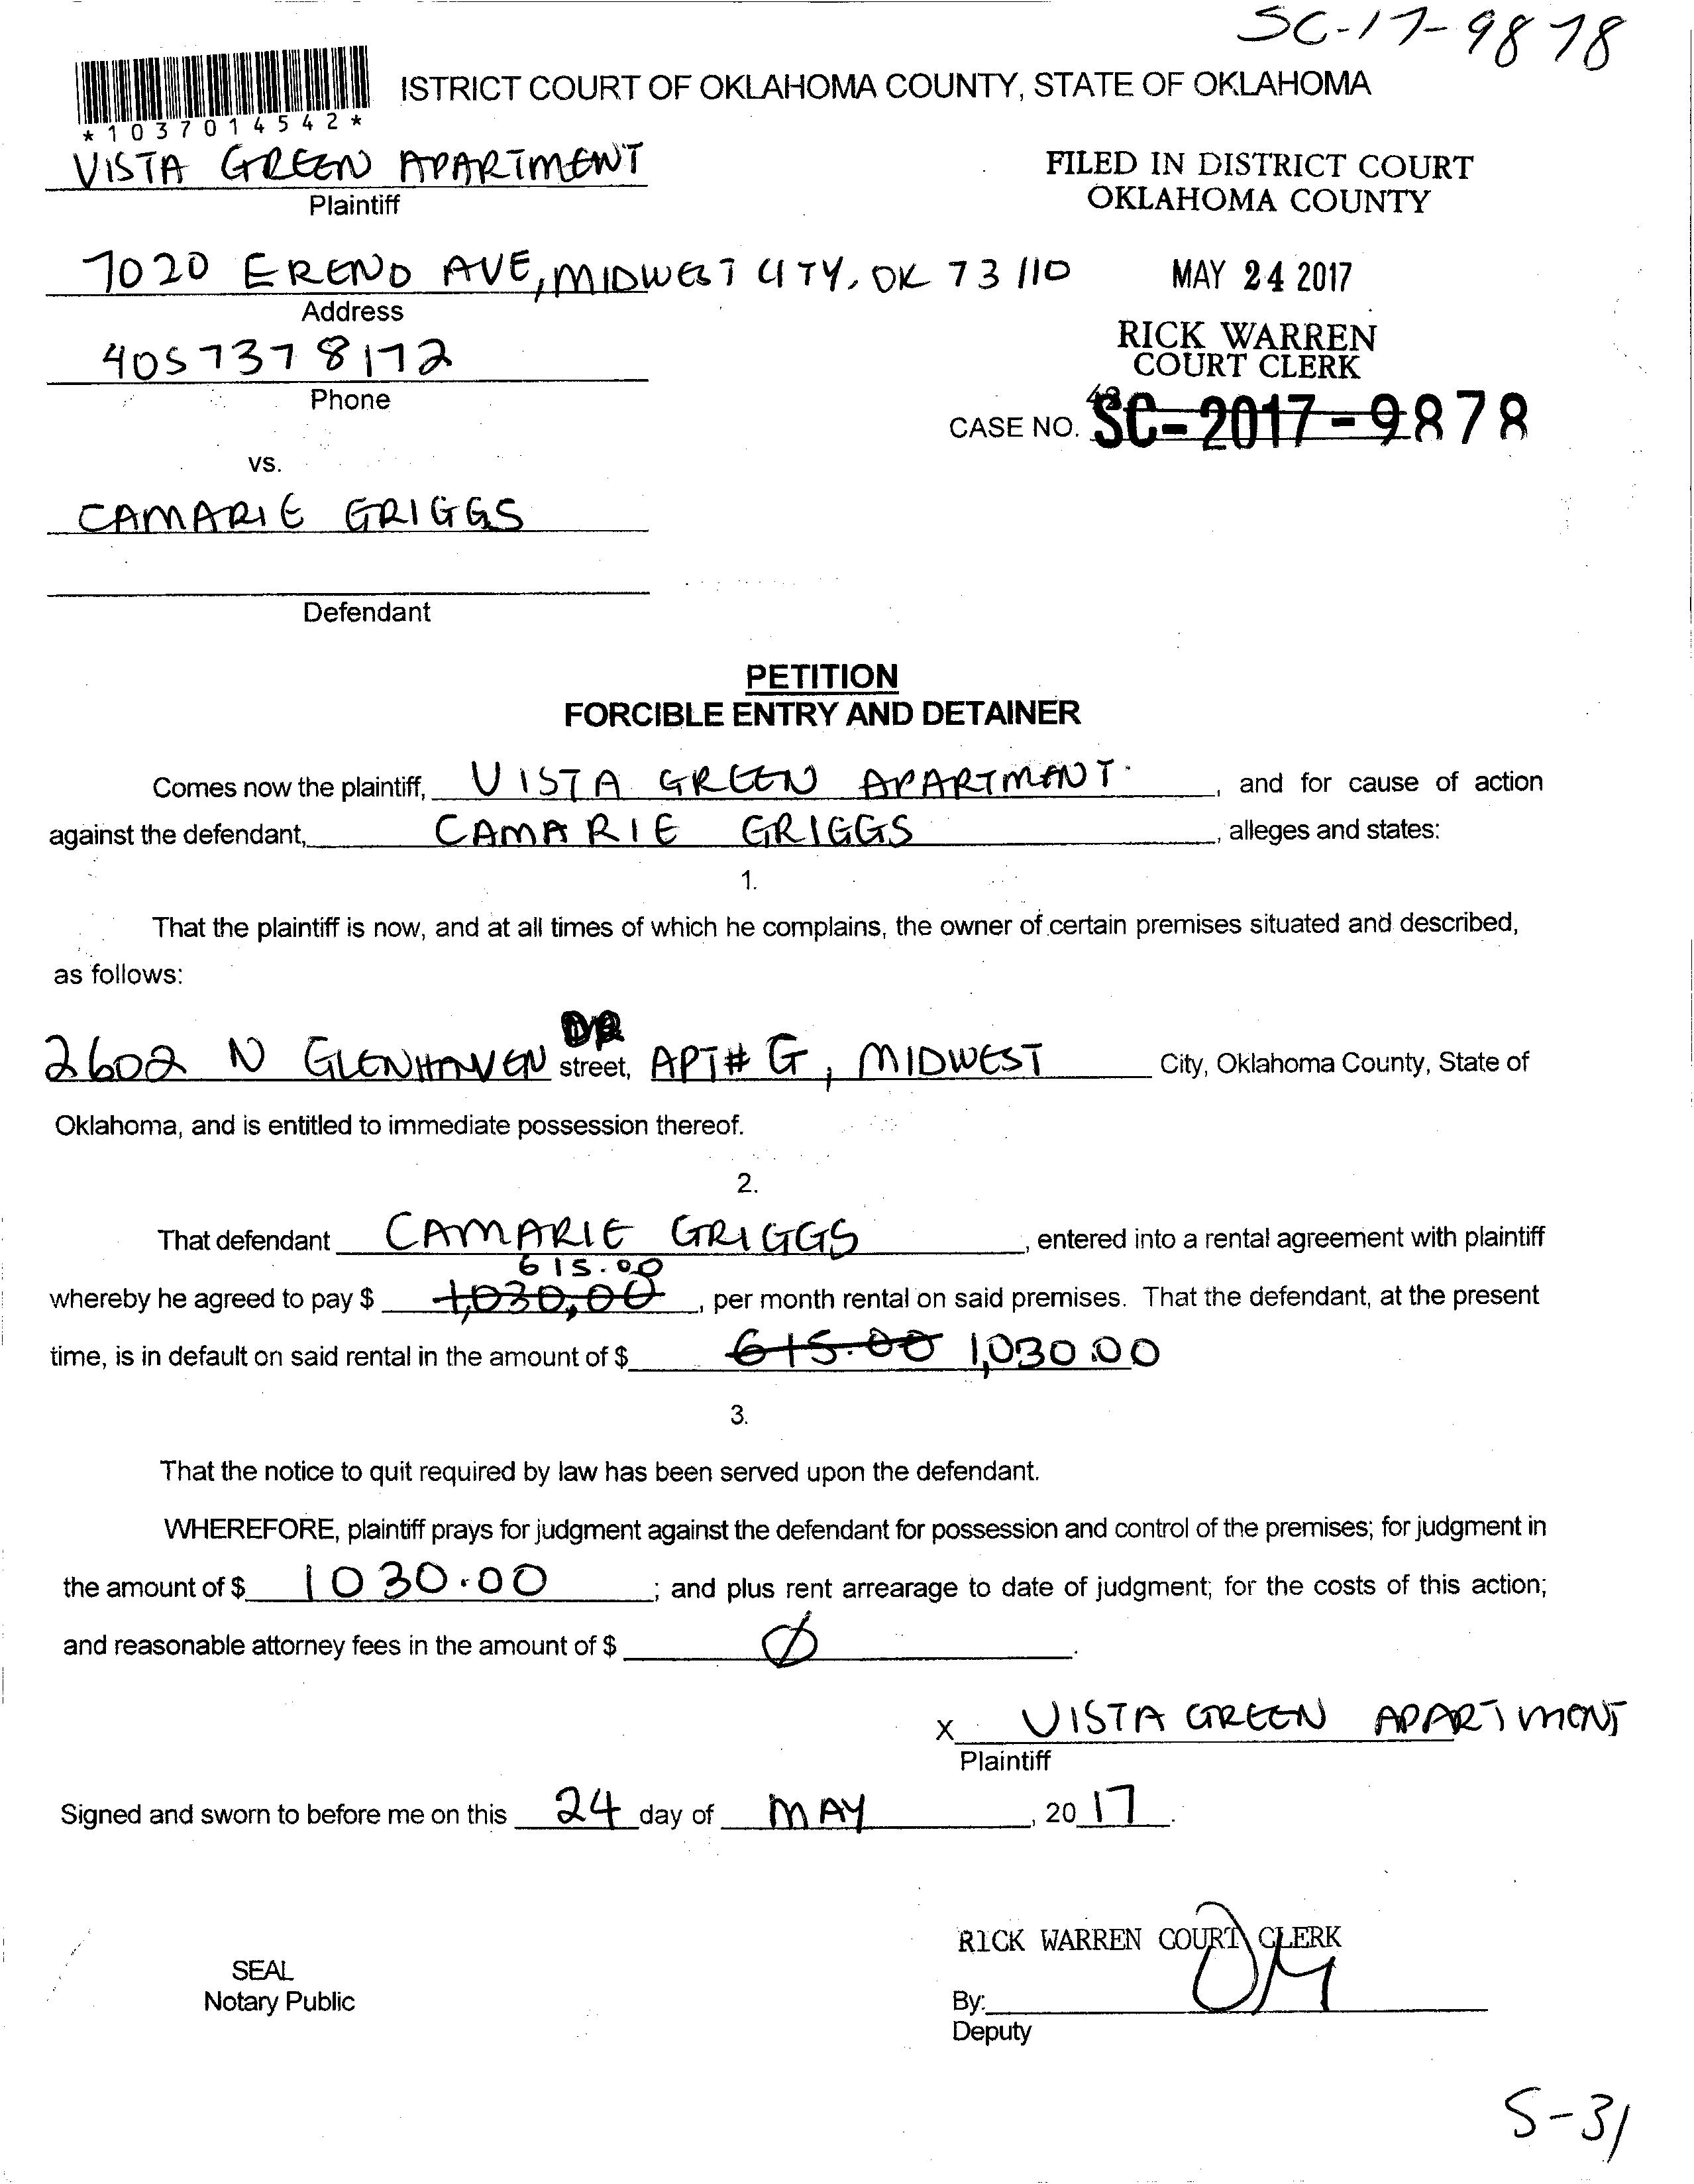 SC-17-9878
ISTRICT COURT OF OKLAHOMA COUNTY, STATE OF OKLAHOMA
*1037014542*
VISTA GREEN APARTMENT
Plaintiff
FILED IN DISTRICT COURT
OKLAHOMA COUNTY
7020 E RENO AVE, MIDWEST CITY, OK 73110
Address
MAY 24 2017
4057378172
Phone
RICK WARREN
COURT CLERK
CASE NO. SC-2017-9878
vs.
CAMARIE GRIGGS
Defendant
PETITION
FORCIBLE ENTRY AND DETAINER
Comes now the plaintiff, VISTA GREEN APARTMENT, and for cause of action
against the defendant, CAMARIE GRIGGS, alleges and states:
1.
That the plaintiff is now, and at all times of which he complains, the owner of certain premises situated and described,
as follows:
DR
2602 N GLENHAVEN street, APT# G, MIDWEST City, Oklahoma County, State of
Oklahoma, and is entitled to immediate possession thereof.
2.
That defendant CAMARIE GRIGGS, entered into a rental agreement with plaintiff
615.00
whereby he agreed to pay $ 1,030,00, per month rental on said premises. That the defendant, at the present
time, is in default on said rental in the amount of $ 615.00 1,030.00
3.
That the notice to quit required by law has been served upon the defendant.
WHEREFORE, plaintiff prays for judgment against the defendant for possession and control of the premises; for judgment in
the amount of $ 1030.00; and plus rent arrearage to date of judgment; for the costs of this action;
and reasonable attorney fees in the amount of $ Ø.
X VISTA GREEN APARTMENT
Plaintiff
Signed and sworn to before me on this 24 day of MAY, 2017.
RICK WARREN COURT CLERK
SEAL
Notary Public
By:
Deputy
5-31